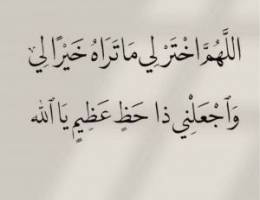 اللَّهُمَّ اخْتَرْ لِي مَا تَرَاهُ خَيْرًا لِي
وَٱجْعَلْنِي ذا حَظٍ عَظِيمٍ يَا ٱللّٰه